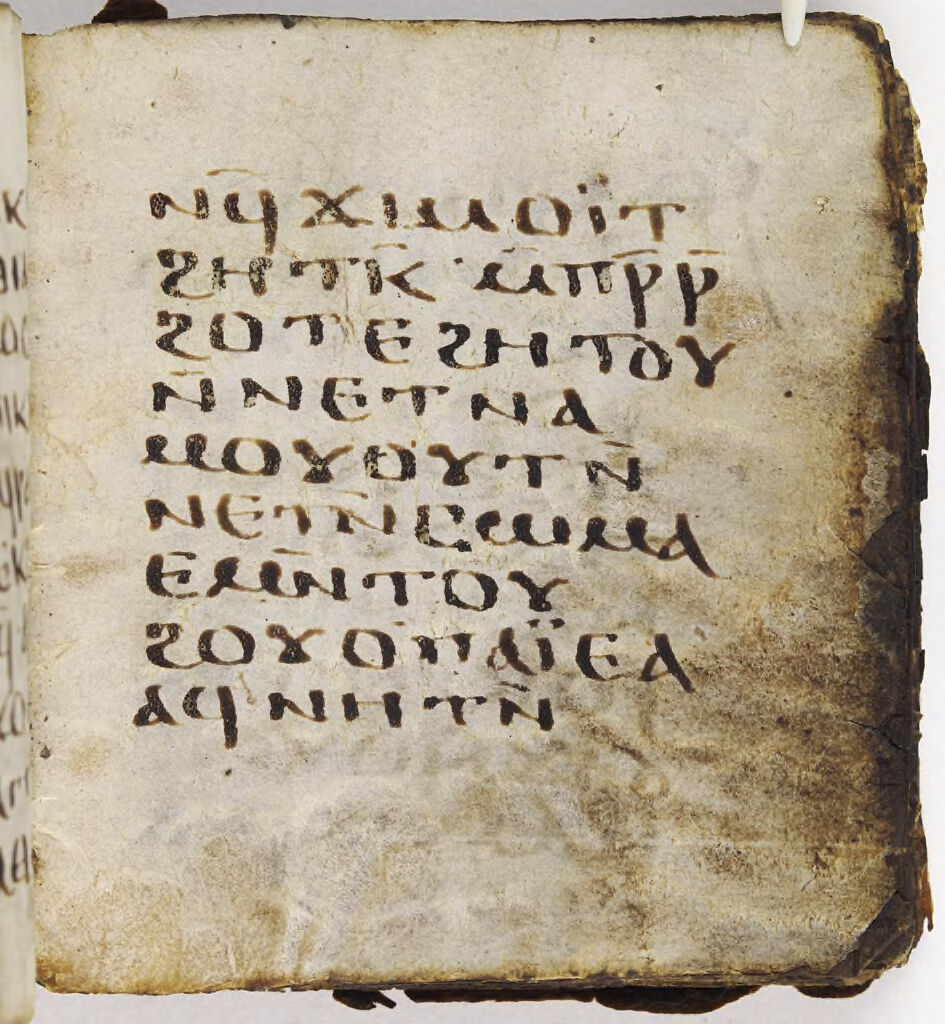 ⲛϥ̄ ϫⲓⲙⲟⲓ̈ⲧ
ϩⲏⲧⲕ̄ ⲙ̄ⲡⲣ̄ⲣ̄
ϩⲟⲧⲉ ϩⲏⲧⲟⲩ
ⲛ̄ⲛⲉⲧⲛⲁ
ⲙⲟⲩⲟⲩⲧⲛ̄
ⲛⲉⲧⲛ̄ⲥⲱⲙⲁ
ⲉⲙⲛ̄ⲧⲟⲩ
ϩⲟⲩⲟ ⲡⲁⲓ̈ ⲉⲁ
ⲁϥ ⲛⲏⲧⲛ̄